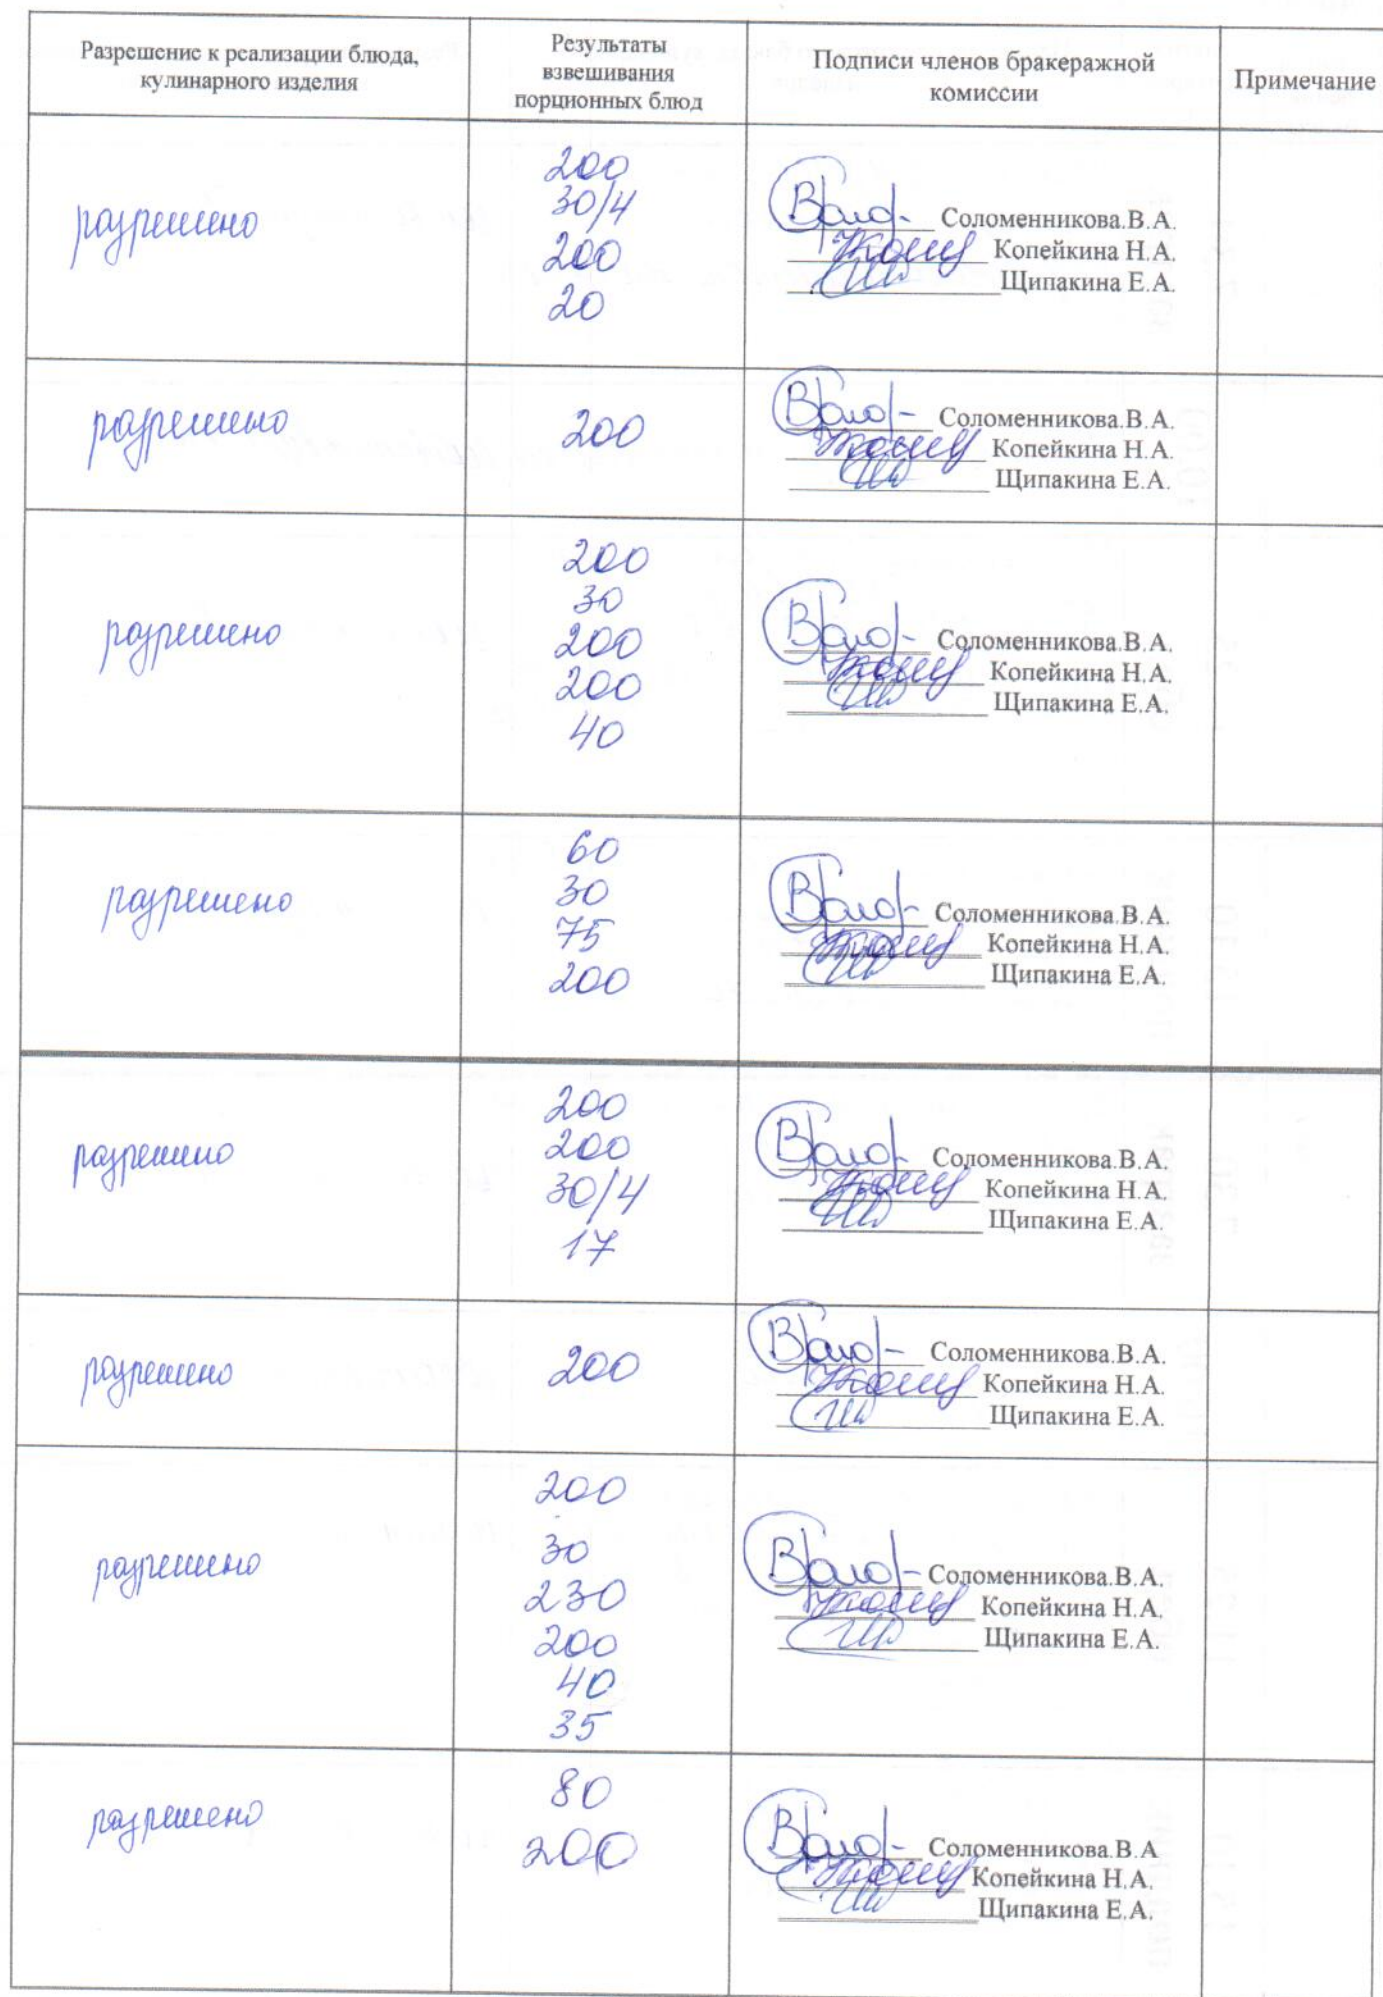 Разрешение к реализации блюда,
кулинарного изделия
Результаты
взвешивания
порционных блюд
Подписи членов бракеражной
комиссии
Примечание
разрешено
200
30/4
200
20
Соломенникова.В.А.
Копейкина Н.А.
Щипакина Е.А.
разрешено
200
Соломенникова.В.А.
Копейкина Н.А.
Щипакина Е.А.
разрешено
200
30
200
200
40
Соломенникова.В.А.
Копейкина Н.А.
Щипакина Е.А.
разрешено
60
30
75
200
Соломенникова.В.А.
Копейкина Н.А.
Щипакина Е.А.
разрешено
200
200
30/4
17
Соломенникова.В.А.
Копейкина Н.А.
Щипакина Е.А.
разрешено
200
Соломенникова.В.А.
Копейкина Н.А.
Щипакина Е.А.
разрешено
200
30
230
200
40
35
Соломенникова.В.А.
Копейкина Н.А.
Щипакина Е.А.
разрешено
80
200
Соломенникова.В.А
Копейкина Н.А.
Щипакина Е.А.